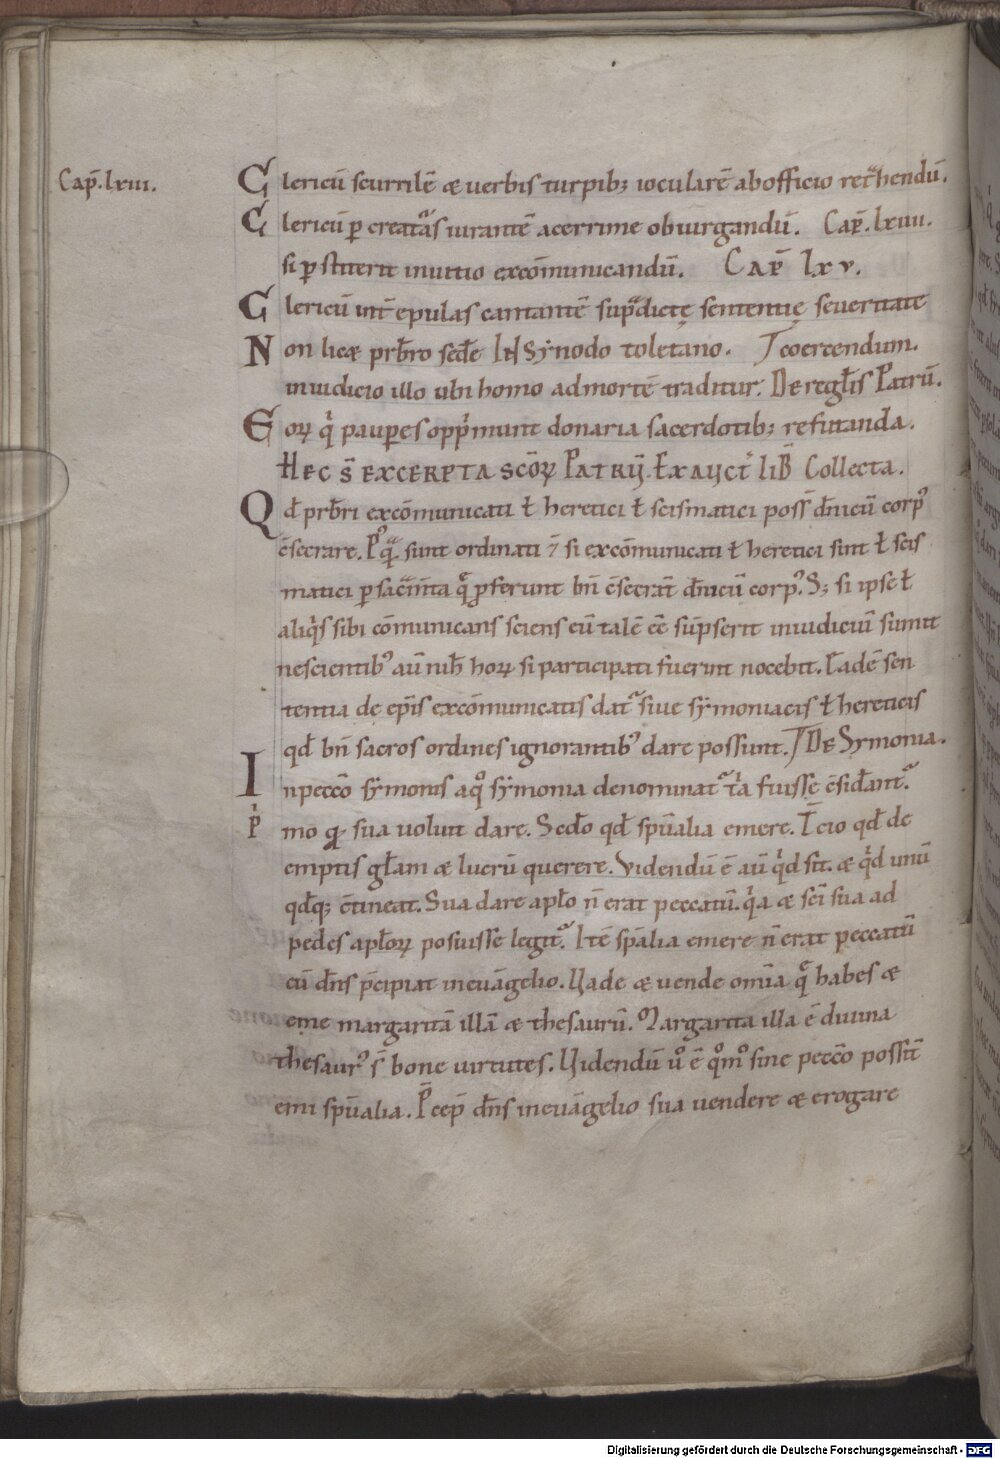 Cap̄. lxiii.
Clericū scurrilē & uerbis turpib; iocularē ab officio retͣhendū.
Clericū p creatͣas iurantē acerrime obiurgandū. Cap̄. lxiiii.
si pstiterit inuitio excōmunicandū. Cap̄ lxv.
Clericū int̄ epulas cantantē sup̄dictę sententię seueritate
Non licæ prb̄ro sed̄e IN Synodo toletano. coercendum.
in iudicio illo ubi homo ad mortē traditur. De regłis Patrū.
Eoꝝ qͥ pauperes opp̄munt donaria sacerdotib; refutanda.
HEC S̄ EXCERPTA SC̄OꝝPATRŪ. EX AUCT̾ LIB̄ Collecta.
Qd̄ prb̄ri excōmunicati ł heretici ł scismatici poss̄ dn̄icū corp᾽
c̄secrare. P᾽qͣ sunt ordinati ⁊ si excōmunicati ł heretici sint ł scis
matici p sac̄m̄ta qͣ ꝓferunt bn̄ c̄secrāt dn̄icū corp᾽. S; si ipse ł
aliqͥs sibi cōmunicans sciens eū talē ēē sūpserit in iudiciū sumit
nescientib᾽ aū nih̄ hoꝝ si participati fuerint nocebit. Eadē sen
tentia de ep̄is excōmunicatis dat᾽ siue symoniacis ł hereticis
qd̄ bn̄ sacros ordines ignorantib᾽ dare possunt. De Symonia.
In pecc̄o symonis a qͦ symonia denominat᾽ tͥa fuisse c̄sid̄ant᾽.
pͥmo qꝛ sua uoluit dare. Sed̄o qd̄ spūalia emere. T̄cio qd̄ de
emptis gl̄am & lucrū querere. Videndū ē aū qͥd sit. & qͥd unū
qd̄q; c̄tineat. Sua dare apl̄o n̄ erat peccatū. qͥa & sc̄i sua ad
pedes apl̄oꝝ posuisse legit᾽. Itē sp̄alia emere n̄ erat peccatū
cū dn̄s p̄cipiat in euāgelio. Uade & uende omīa qͣ habes &
eme margaritā illā & thesaurū. Margarita illa ē diuina
thesaur᾽ s̄ bone uirtutes. Uidendū uͦ ē qͦmͦ sine pecc̄o possit̄
emi spūalia. P̄cep̄ dn̄s in euāgelio sua uendere & erogare
Digitalisierung gefördert durch die Deutsche Forschungsgemeinschaft - DFG